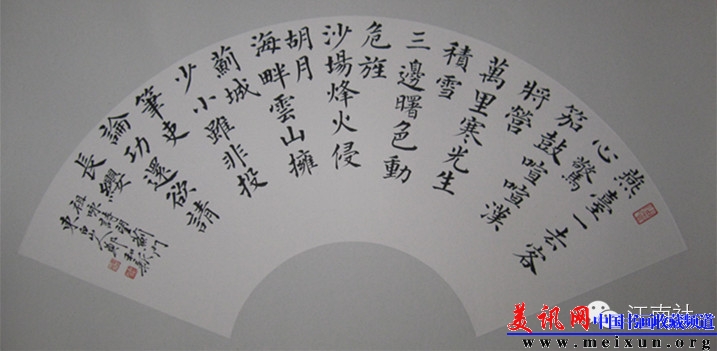 燕臺一去客
心驚
笳鼓喧喧漢
將營
萬里寒光生
積雪
三邊曙色動
危旌
沙場烽火侵
胡月
海畔雲山擁
薊城
少小雖非投
筆吏
論功還欲請
長纓
祖咏詩望薊門
東魯人鄭
江南社
美讯网 中国书画收藏频道
www.meixun.org